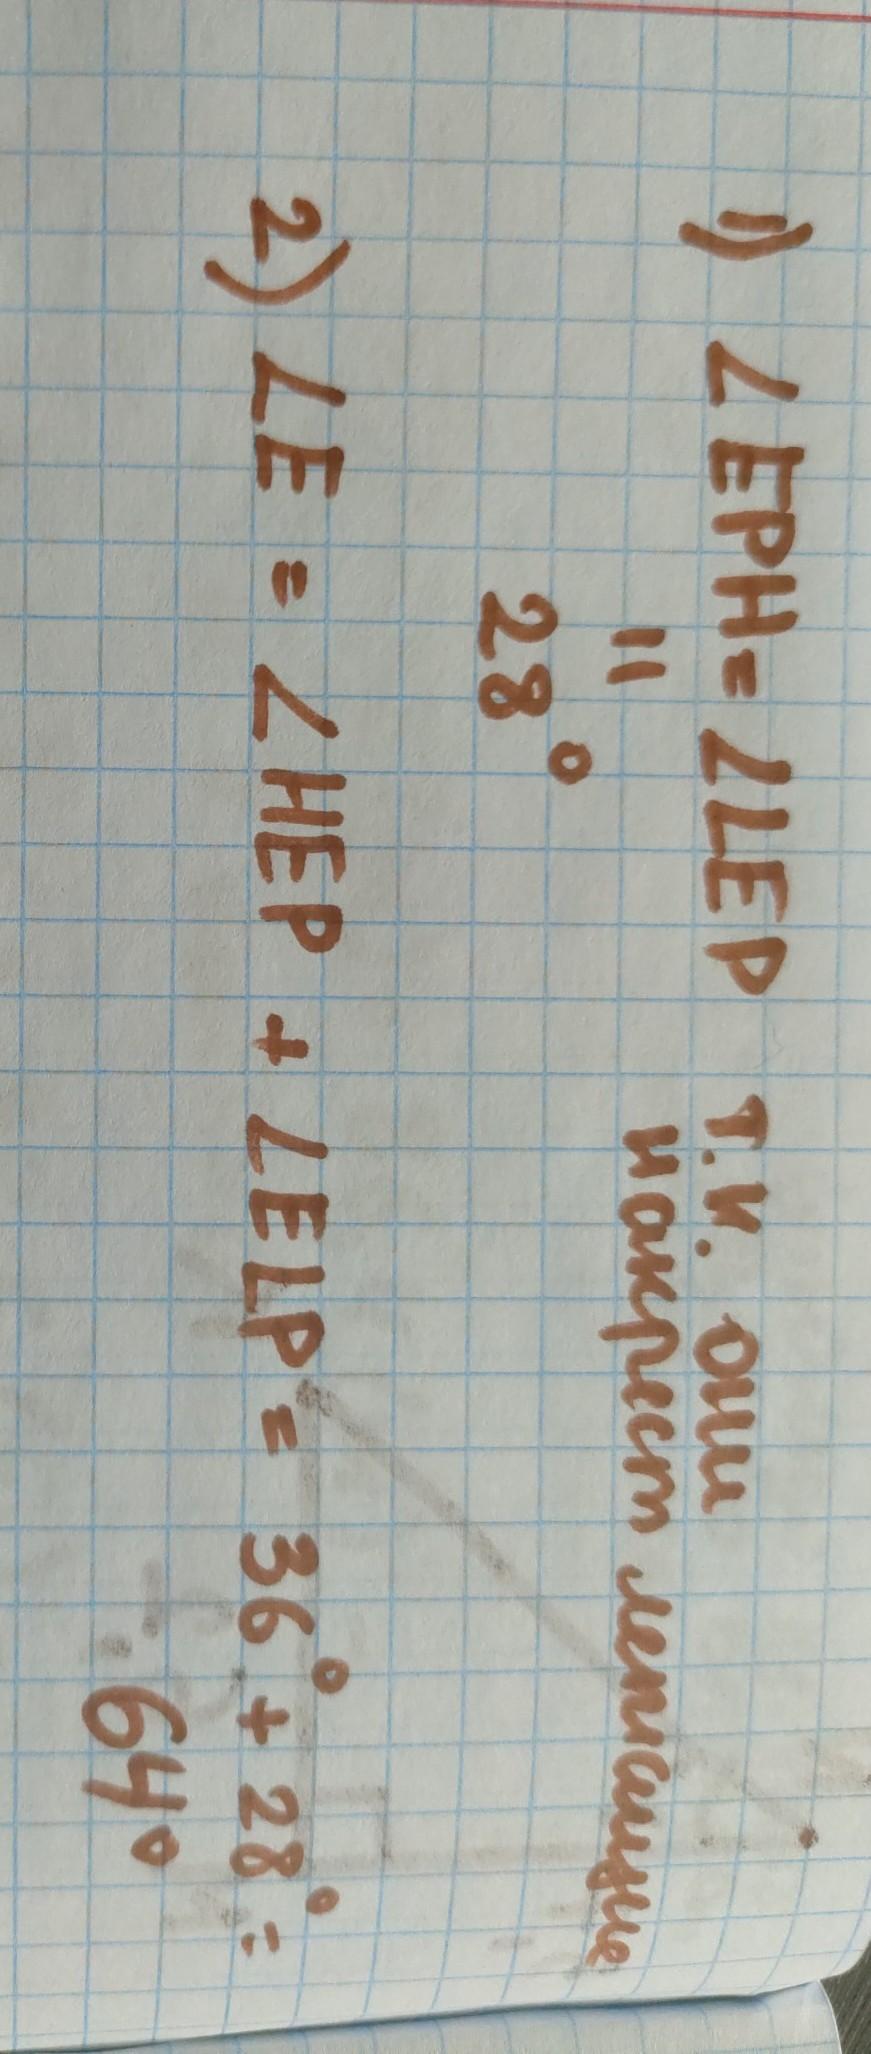 1) ∠EPH = ∠LEP т.к. они
накрест лежащие
"
28°
2) ∠E = ∠HEP + ∠ELP = 36° + 28° =
64°